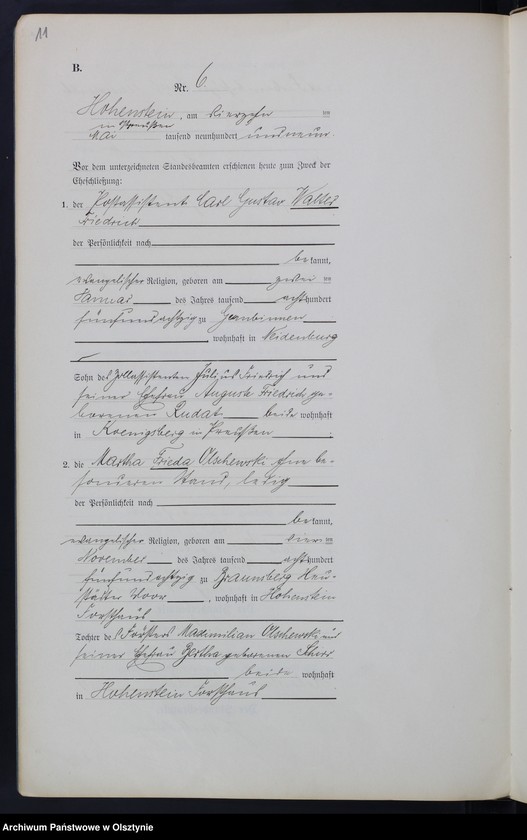 11
B.
Nr. 6.
Hohenstein, am vierzehn
in Ostpreußen
Mai tausend neunhundert und neun.
Vor dem unterzeichneten Standesbeamten erschienen heute zum Zweck der
Eheschließung:
1. der Postassistent Carl Gustav Walter
Friedrich
der Persönlichkeit nach
bekannt,
evangelischer Religion, geboren am zweiten
Januar des Jahres tausend achthundert
fünfundachtzig zu Gumbinnen
, wohnhaft in Neidenburg
Sohn des Zollassistenten Julius Friedrich und
seiner Ehefrau Auguste Friedrich ge-
borenen Rudat beide wohnhaft
in Koenigsberg in Preußen.
2. die Martha Frieda Olschewski ohne be-
sonderen Stand, ledig
der Persönlichkeit nach
bekannt,
evangelischer Religion, geboren am vierten
November des Jahres tausend achthundert
fünfundachtzig zu Braunsberg
, wohnhaft in Hohenstein
Forsthaus
Tochter des Försters Maximilian Olschewski und
seiner Ehefrau Bertha geborenen
beide wohnhaft
in Hohenstein Forsthaus
Archiwum Państwowe w Olsztynie